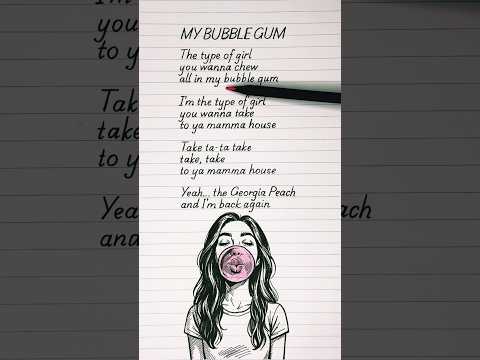 MY BUBBLE GUM
The type of girl
you wanna chew
all in my bubble gum
I'm the type of girl
you wanna take
to ya mamma house
Take ta-ta take
take, take
to ya mamma house
Yeah... the Georgia Peach
and I'm back again